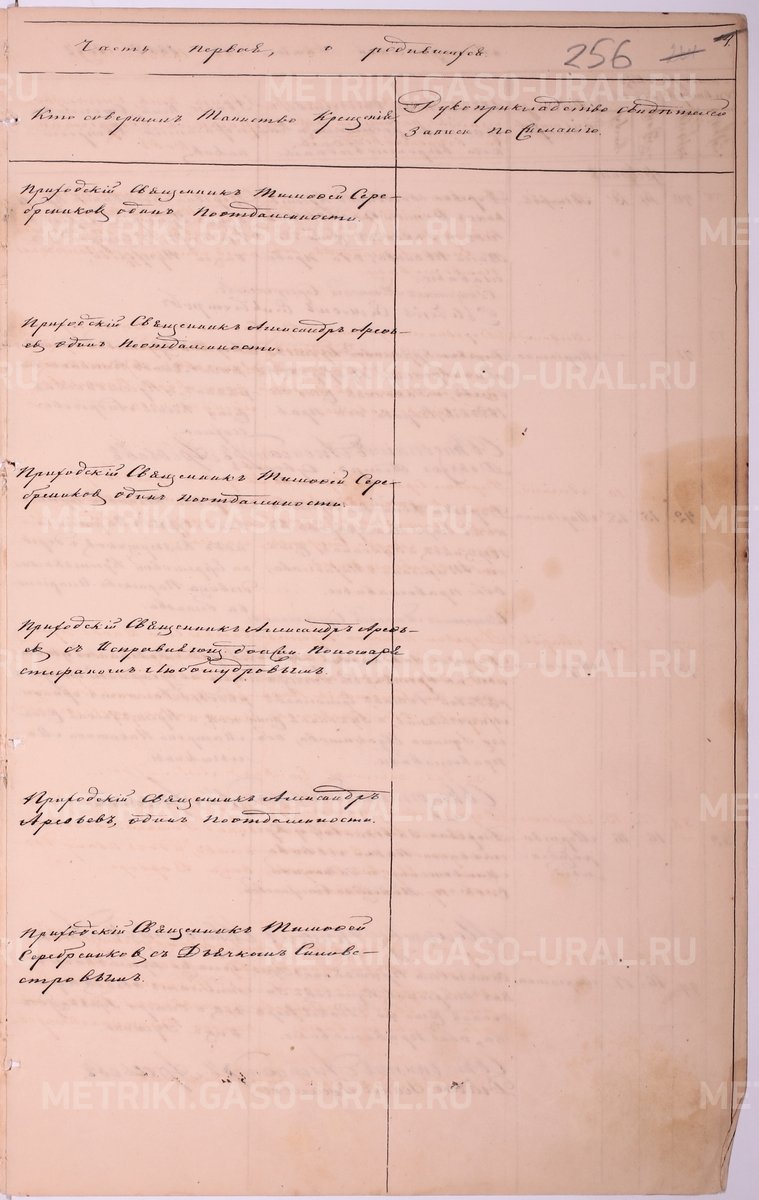 Часть первая, о родившихся.
256
Кто совершилъ Таинство Крещенія
Рукоприкладство свидѣтелей
записи по желанію.
Приходскій Священникъ Тимоѳей Сере-
брениковъ одинъ по отдаленности.
Приходскій Священникъ Александръ Арефь-
евъ одинъ по отдаленности.
Приходскій Священникъ Тимоѳей Сере-
брениковъ одинъ по отдаленности.
Приходскій Священникъ Александръ Арефь-
евъ съ Исправляющ. должн. Пономаря
Стефаномъ Любомудровымъ.
Приходскій Священникъ Александръ
Арефьевъ, одинъ по отдаленности.
Приходскій Священникъ Тимоѳей
Серебрениковъ съ Дьячкомъ
METRIKI.GASO-URAL.RU